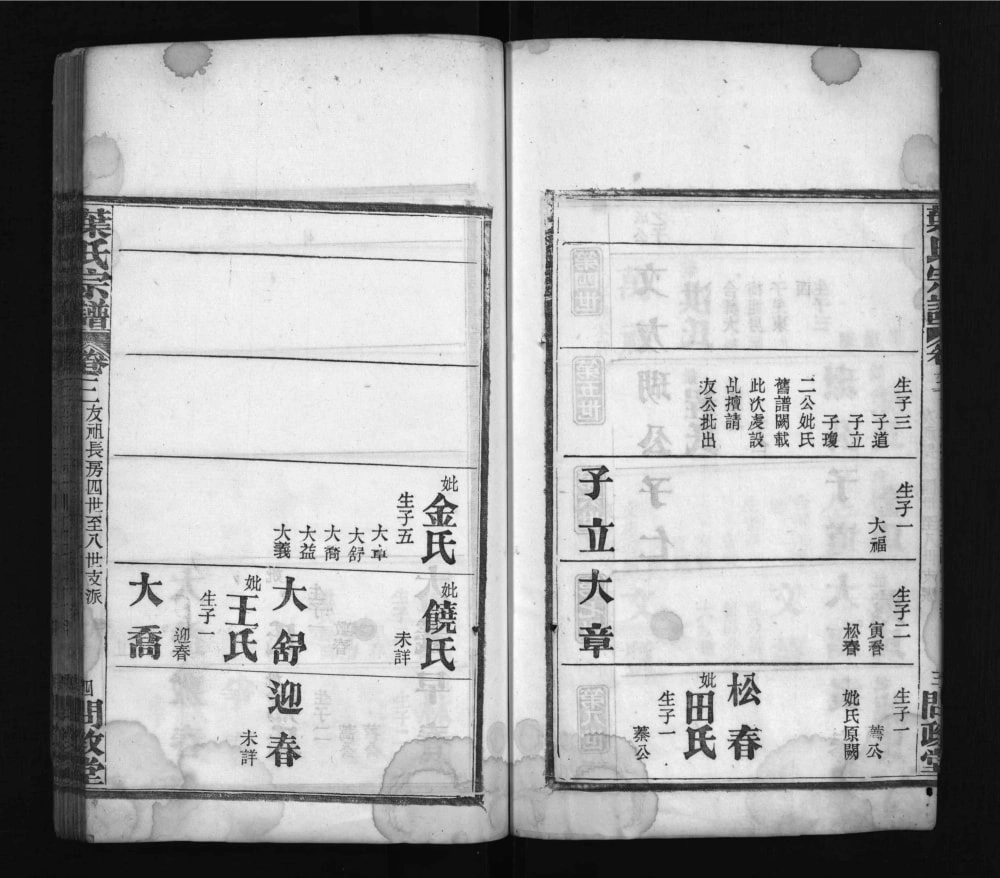 生子三
子道
子立
子瓊
二公妣氏
舊譜闕載
此次處設
乩擅請
友公批出
生子一
大福
子立
生子二
寅春
松春
大章
生子一
妣氏原闕
松春
妣田氏
生子一
蓁公
三
問政堂
葉氏宗譜
卷三
友祖長房四世至八世支派
四
問政堂
妣金氏
生子五
大卓
大舒
大喬
大益
大義
妣饒氏
未詳
大舒
妣王氏
生子一
迎春
大喬
迎春
未詳